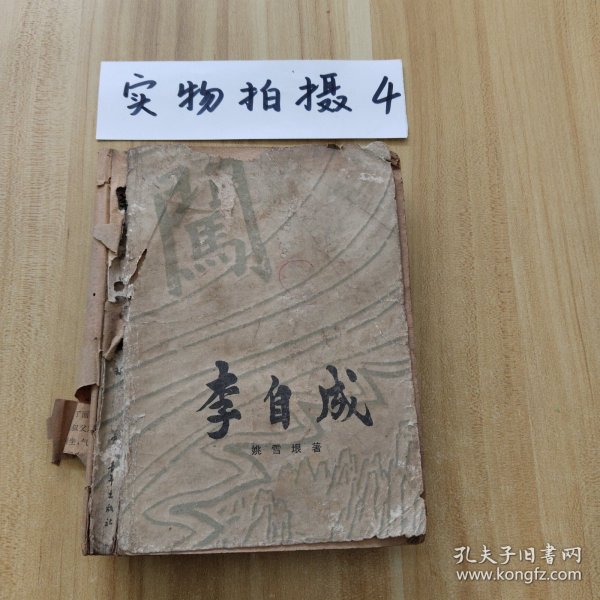 实物拍摄4
闯
李自成
姚雪垠著
青年出版社
孔夫子旧书网
www.kongfz.com